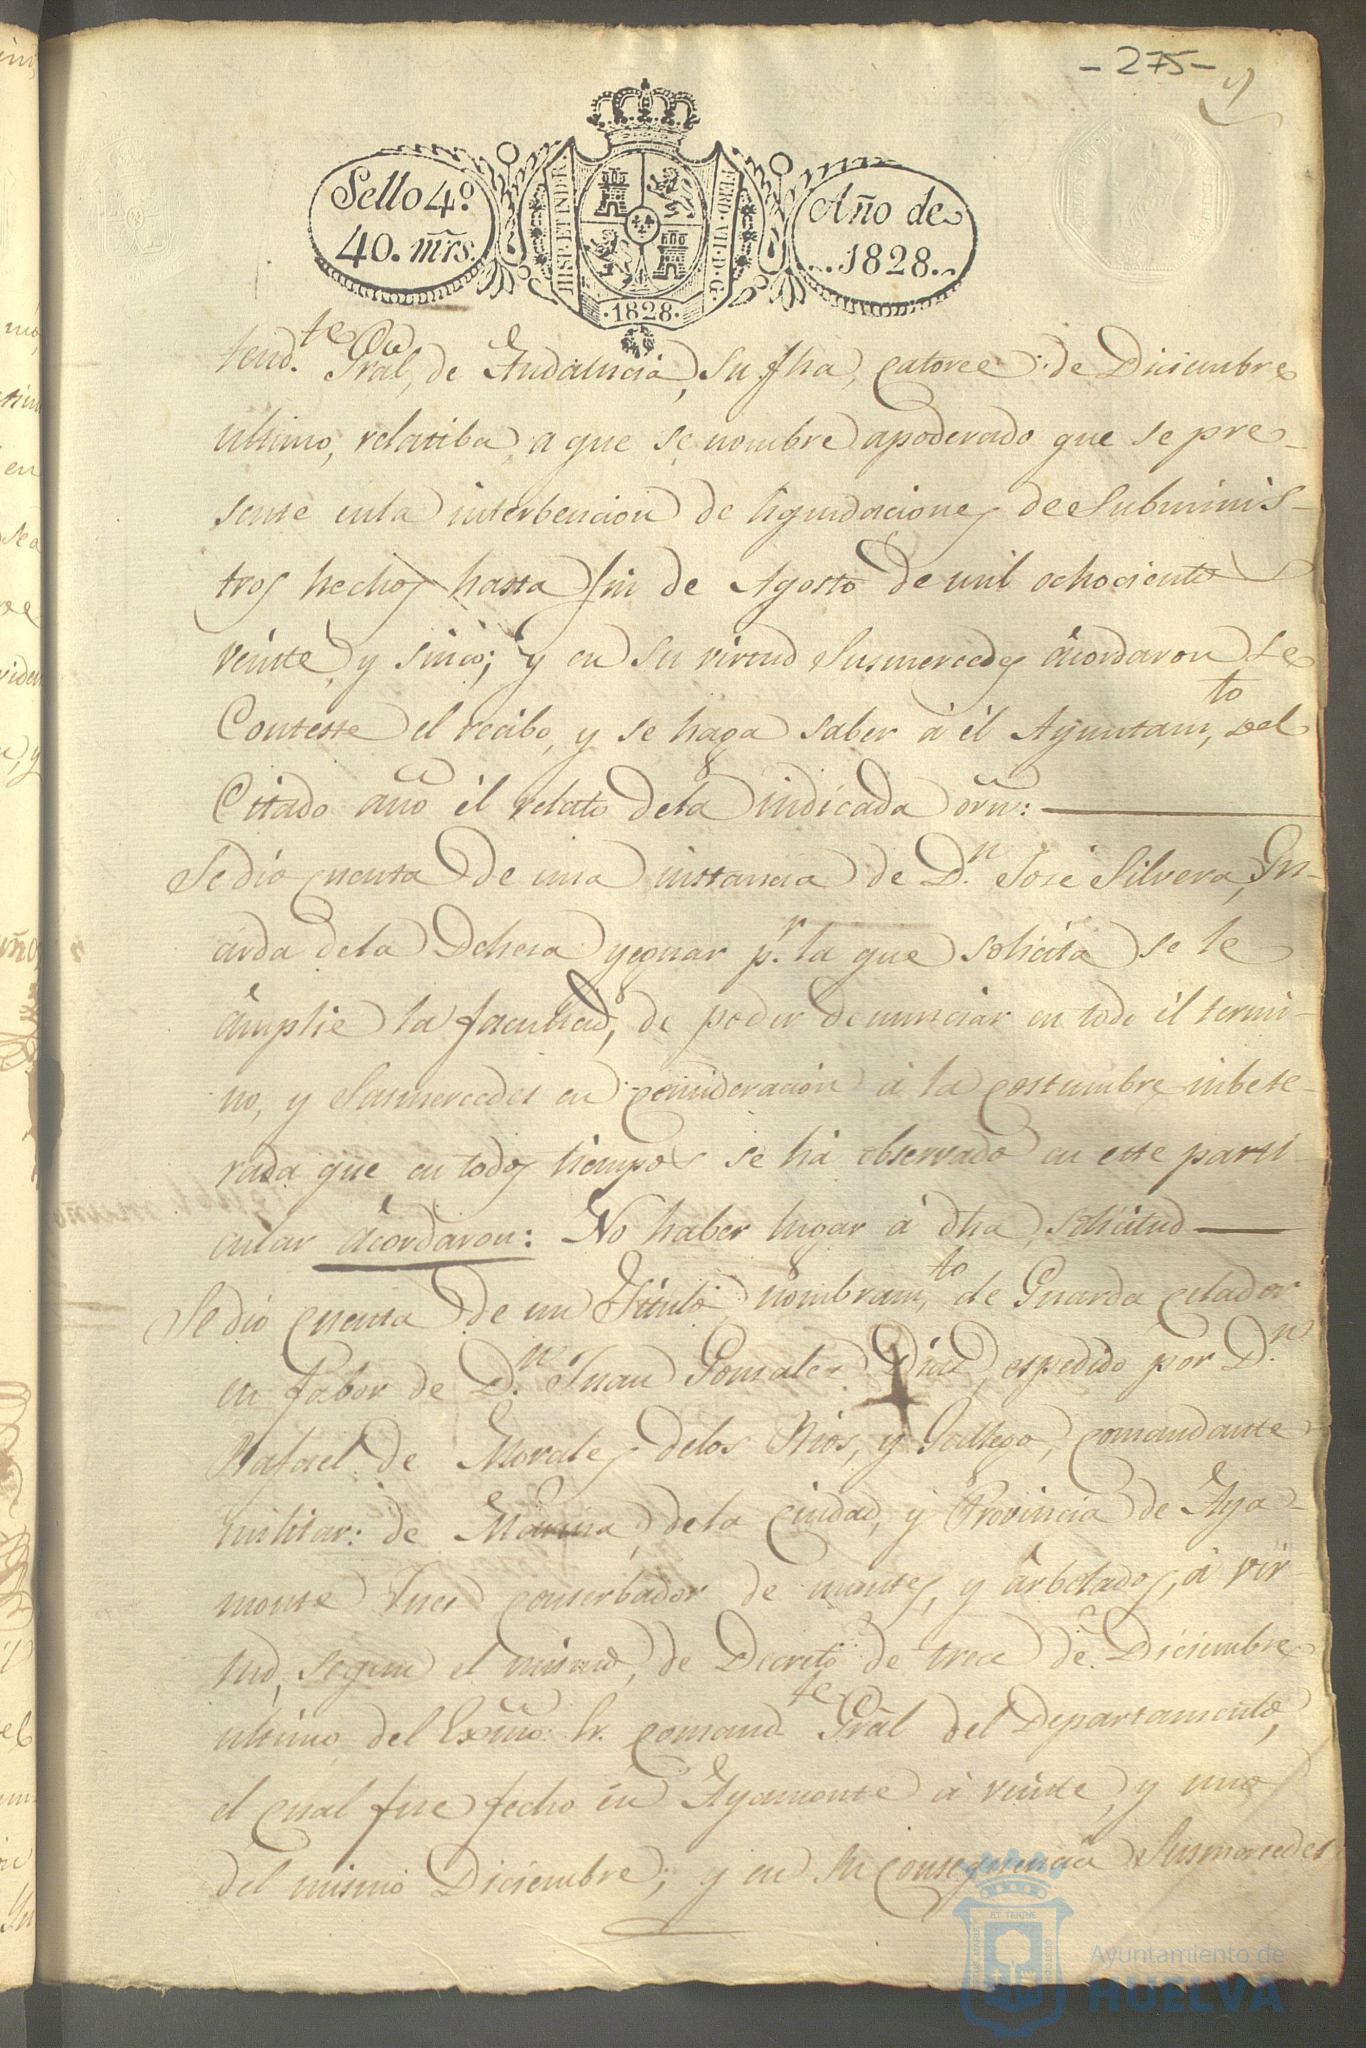 - 275 -
Sello 4º
40. mrs.
HISP. ET IND. R.
FERD. VII. D. G.
1828
Año de
1828.
tend.te Gral, de Andalucia, su fha, catorce de Diciembre
ultimo, relatiba a que se nombre apoderado que se pre-
sente enla interbencion de liquidaciones de Subminis-
tros hechos hasta fin de Agosto de mil ochocientos
veinte, y sinco; y en su virtud Susmercedes ácordaron se
Conteste el recibo, y se haga saber á él Ayuntam,to del
Citado año él relato dela indicada orñ:
Se dió cuenta de una instancia de D.n José Silvera, Gu-
árda dela Dehesa yeguar p.r la que solicita se le
ámplie la facultad, de poder denunciar en todo él termi-
no, y Susmercedes en concideracion á la costumbre inbete-
rada que en todos tiempos se há observado en este parti-
cular ácordaron: No haber lugar á dha, solicitud
Se dió cuenta de un Titulo, nombram,to de Guarda celador
en fabor de D.n Juan Gonzalez Diaz, espedido por D.n
Rafael de Morales delos Rios, y Gallego, comandante
militar: de Marina, dela Ciudad, y Provincia de Aya-
monte Jues conserbador de montes, y árbolados, á vir-
tud, segun el mismo, de Decreto de trece de Diciembre
ultimo del Exmo. Sr. comand.te Gral del Departamento,
el cual fue fecho en Ayamonte á veinte, y uno
del mismo Diciembre; y en su consequencia Susmercedes
Ayuntamiento de
HUELVA